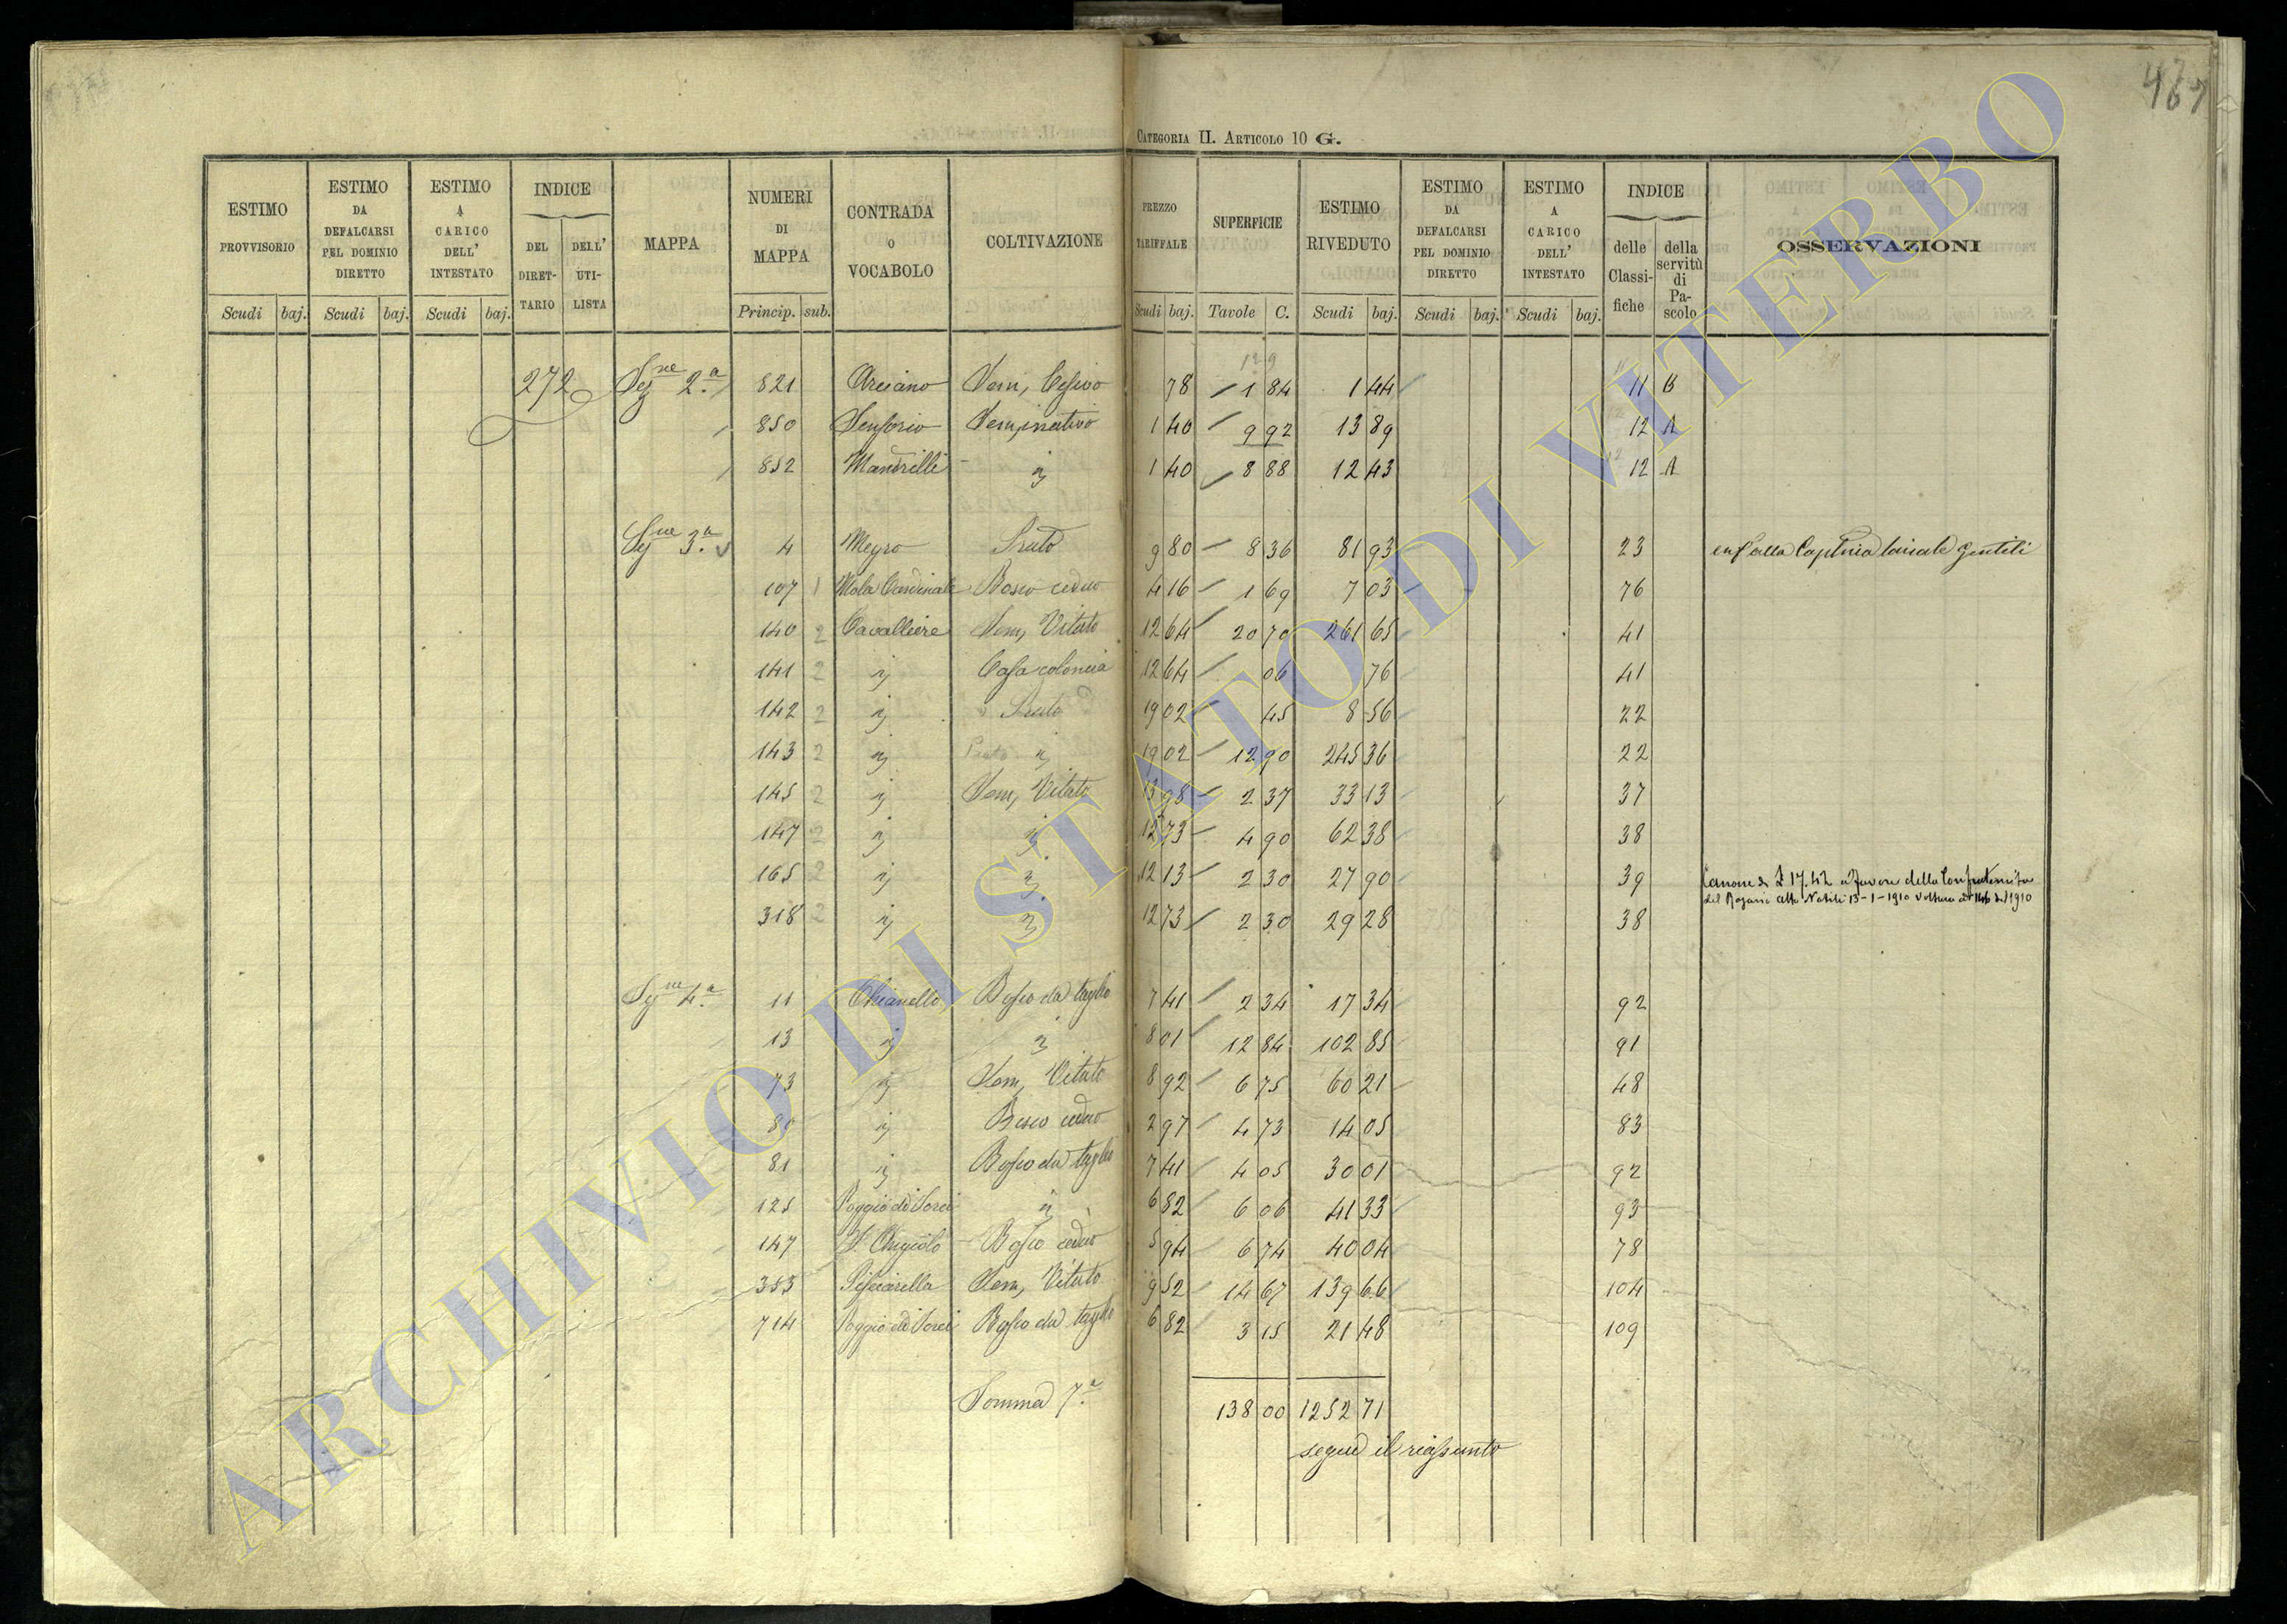 467
CATEGORIA II. ARTICOLO 10 G.
ESTIMO PROVVISORIO Scudi baj.
ESTIMO DA DEFALCARSI PEL DOMINIO DIRETTO Scudi baj.
ESTIMO A CARICO DELL' INTESTATO Scudi baj.
INDICE DEL DIRETTARIO DELL' UTILISTA
MAPPA
NUMERI DI MAPPA Princip. sub.
CONTRADA O VOCABOLO
COLTIVAZIONE
PREZZO TARIFFALE Scudi baj.
SUPERFICIE Tavole C.
ESTIMO RIVEDUTO Scudi baj.
ESTIMO DA DEFALCARSI PEL DOMINIO DIRETTO Scudi baj.
ESTIMO A CARICO DELL' INTESTATO Scudi baj.
INDICE delle Classifiche della servitù di Pascolo
OSSERVAZIONI
272 Segne 2.a 821 Arciano Sem, Cesivo 78 1 84 1 44 11 B
850 Seminativo 1 40 9 92 13 89 12 A
852 Mandrille " 1 40 8 88 12 43 12 A
Segne 3.a 4 Megro Prato 9 80 8 36 81 93 23
107 1 Mola Cardinale Bosco ceduo 4 16 1 69 7 03 76
140 2 Cavalliere Sem, Vitato 12 64 20 70 261 65 41
141 2 " Casa colonica 12 64 06 76 41
142 2 " Prato 19 02 45 8 56 22
143 2 " " 19 02 12 90 245 36 22
145 2 " Sem, Vitato 13 98 2 37 33 13 37
147 2 " " 12 73 4 90 62 38 38
165 2 " " 12 13 2 30 27 90 39 Canone di £ 17.42 a favore della Confraternita
del Rosario atto Nobili 13-1-1910 Voltura 146 del 1910
318 2 " " 12 73 2 30 29 28 38
Segne 4.a 11 Chianello Bosco da taglio 7 41 2 34 17 34 92
13 " " 8 01 12 84 102 85 91
73 " Sem, Vitato 8 92 6 75 60 21 48
80 " Bosco ceduo 2 97 4 73 14 05 83
81 " Bosco da taglio 7 41 4 05 30 01 92
125 Poggio di Sorei " 6 82 6 06 41 33 93
147 S. Angiolo Bosco ceduo 5 94 6 74 40 04 78
353 Pisciarella Sem, Vitato 9 52 14 67 139 66 104
714 Poggio di Sorei Bosco da taglio 6 82 3 15 21 48 109
Somma 7.a 138 00 1252 71
segue il riassunto
ARCHIVIO DI STATO DI VITERBO